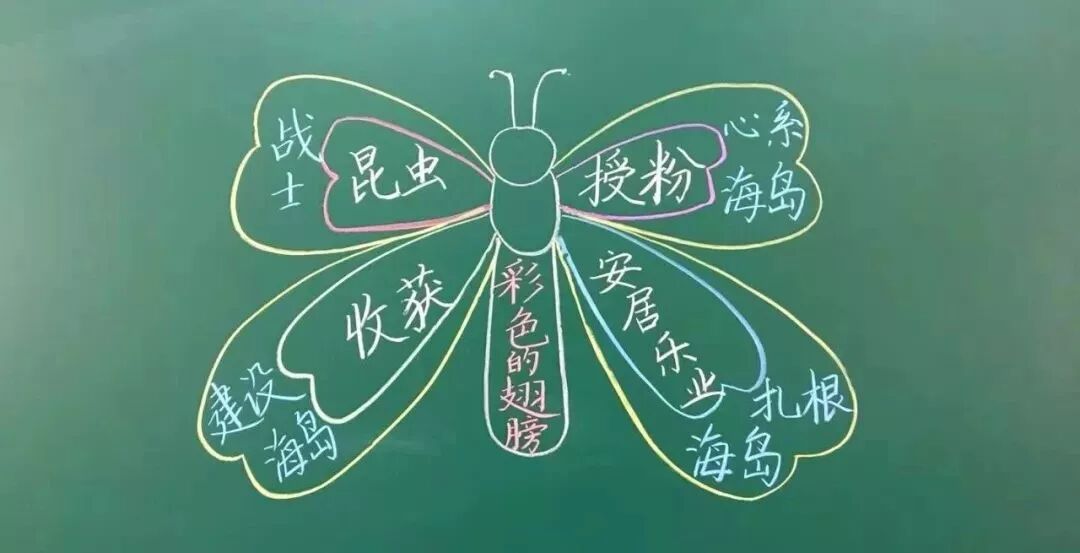 战士
昆虫
授粉
心系
海岛
收获
建设
海岛
彩色的翅膀
安居乐业
扎根
海岛